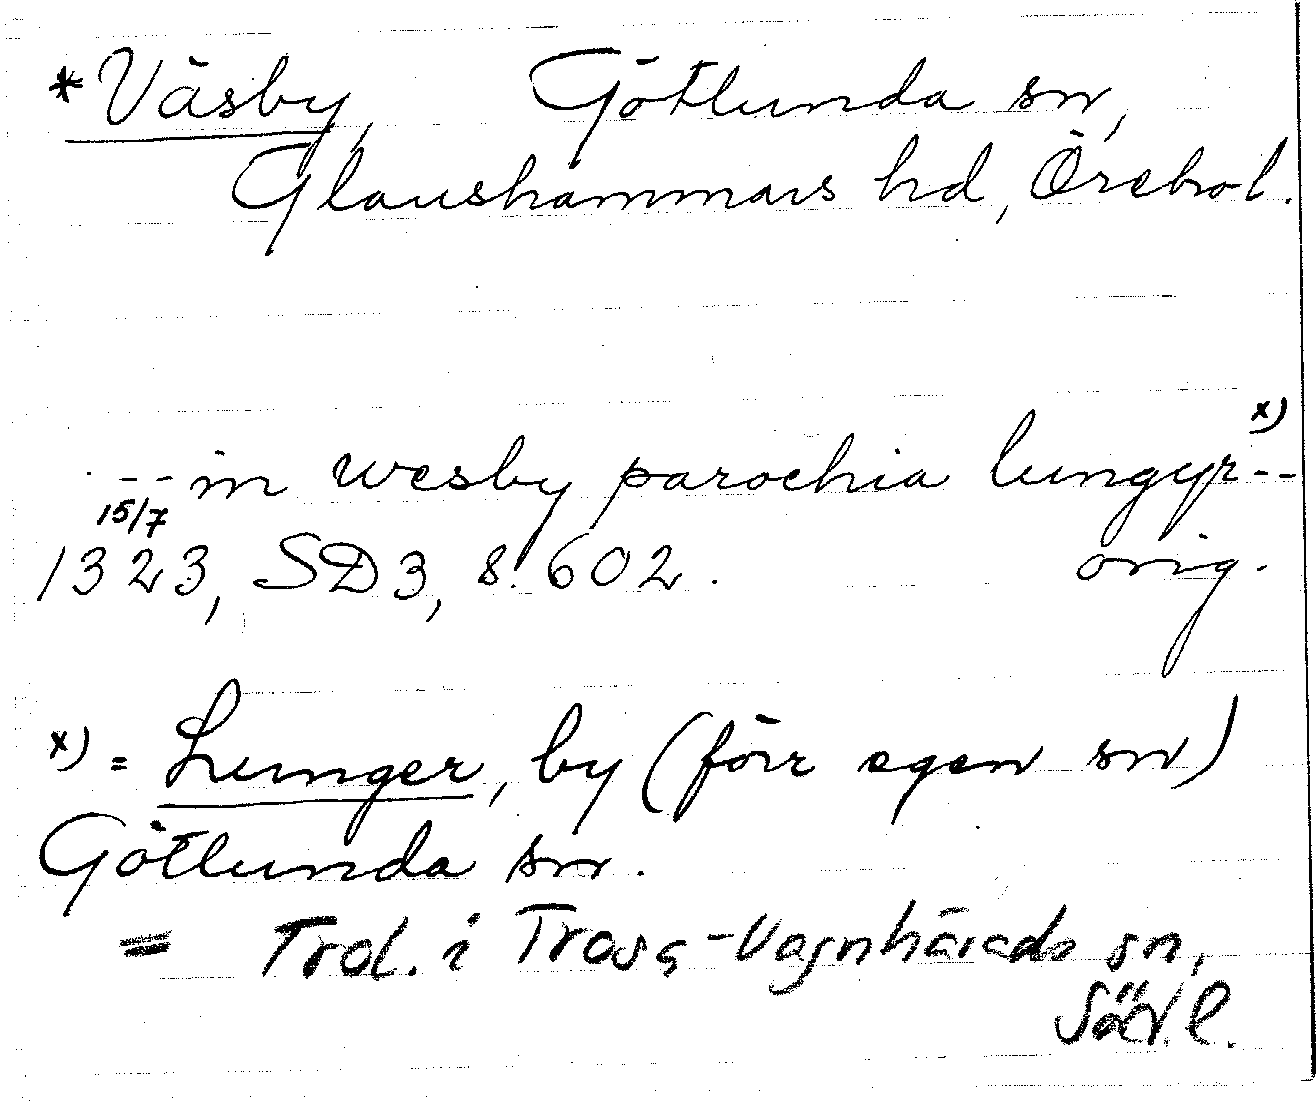 *Väsby, Götlunda sn,
Glanshammars hd, Örebro l.
x)
-- in wesby parochia lungyr--
15/7
1323, SD3, s. 602. orig.
x) = Lunger, by (förr egen sn)
Götlunda sn.
= Trol. i Trosa-Vagnhärads sn,
Söd. l.